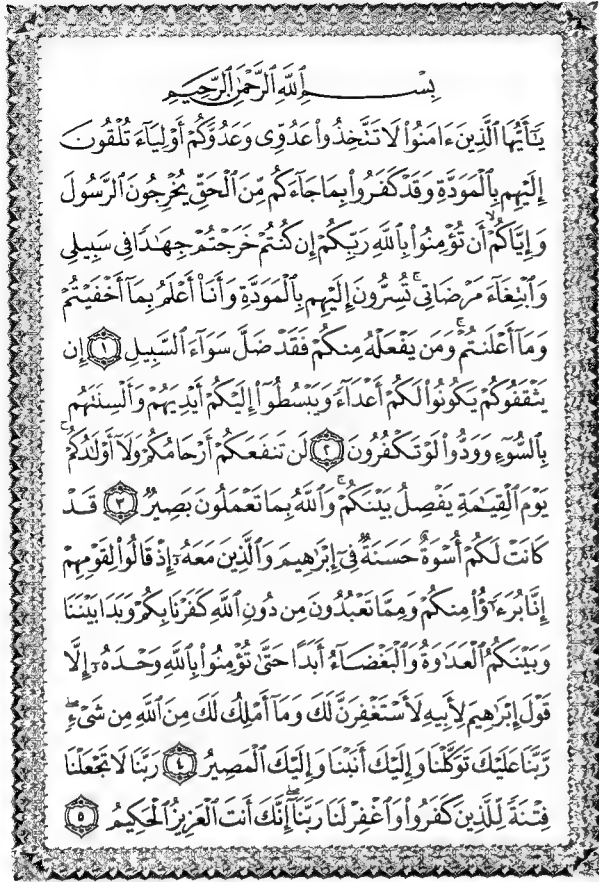 بِسْمِ ٱللَّهِ ٱلرَّحْمَٰنِ ٱلرَّحِيمِ
يَٰٓأَيُّهَا ٱلَّذِينَ ءَامَنُوا۟ لَا تَتَّخِذُوا۟ عَدُوِّى وَعَدُوَّكُمْ أَوْلِيَآءَ تُلْقُونَ
إِلَيْهِم بِٱلْمَوَدَّةِ وَقَدْ كَفَرُوا۟ بِمَا جَآءَكُم مِّنَ ٱلْحَقِّ يُخْرِجُونَ ٱلرَّسُولَ
وَإِيَّاكُمْ ۙ أَن تُؤْمِنُوا۟ بِٱللَّهِ رَبِّكُمْ إِن كُنتُمْ خَرَجْتُمْ جِهَٰدًا فِى سَبِيلِى
وَٱبْتِغَآءَ مَرْضَاتِى ۚ تُسِرُّونَ إِلَيْهِم بِٱلْمَوَدَّةِ وَأَنَا۠ أَعْلَمُ بِمَآ أَخْفَيْتُمْ
وَمَآ أَعْلَنتُمْ ۚ وَمَن يَفْعَلْهُ مِنكُمْ فَقَدْ ضَلَّ سَوَآءَ ٱلسَّبِيلِ ١ إِن
يَثْقَفُوكُمْ يَكُونُوا۟ لَكُمْ أَعْدَآءً وَيَبْسُطُوٓا۟ إِلَيْكُمْ أَيْدِيَهُمْ وَأَلْسِنَتَهُم
بِٱلسُّوٓءِ وَوَدُّوا۟ لَوْ تَكْفُرُونَ ٢ لَن تَنفَعَكُمْ أَرْحَامُكُمْ وَلَآ أَوْلَٰدُكُمْ ۚ
يَوْمَ ٱلْقِيَٰمَةِ يَفْصِلُ بَيْنَكُمْ ۚ وَٱللَّهُ بِمَا تَعْمَلُونَ بَصِيرٌ ٣ قَدْ
كَانَتْ لَكُمْ أُسْوَةٌ حَسَنَةٌ فِىٓ إِبْرَٰهِيمَ وَٱلَّذِينَ مَعَهُۥٓ إِذْ قَالُوا۟ لِقَوْمِهِمْ
إِنَّا بُرَءَٰٓؤُا۟ مِنكُمْ وَمِمَّا تَعْبُدُونَ مِن دُونِ ٱللَّهِ كَفَرْنَا بِكُمْ وَبَدَا بَيْنَنَا
وَبَيْنَكُمُ ٱلْعَدَٰوَةُ وَٱلْبَغْضَآءُ أَبَدًا حَتَّىٰ تُؤْمِنُوا۟ بِٱللَّهِ وَحْدَهُۥٓ إِلَّا
قَوْلَ إِبْرَٰهِيمَ لِأَبِيهِ لَأَسْتَغْفِرَنَّ لَكَ وَمَآ أَمْلِكُ لَكَ مِنَ ٱللَّهِ مِن شَىْءٍ ۖ
رَّبَّنَا عَلَيْكَ تَوَكَّلْنَا وَإِلَيْكَ أَنَبْنَا وَإِلَيْكَ ٱلْمَصِيرُ ٤ رَبَّنَا لَا تَجْعَلْنَا
فِتْنَةً لِّلَّذِينَ كَفَرُوا۟ وَٱغْفِرْ لَنَا رَبَّنَآ ۖ إِنَّكَ أَنتَ ٱلْعَزِيزُ ٱلْحَكِيمُ ٥